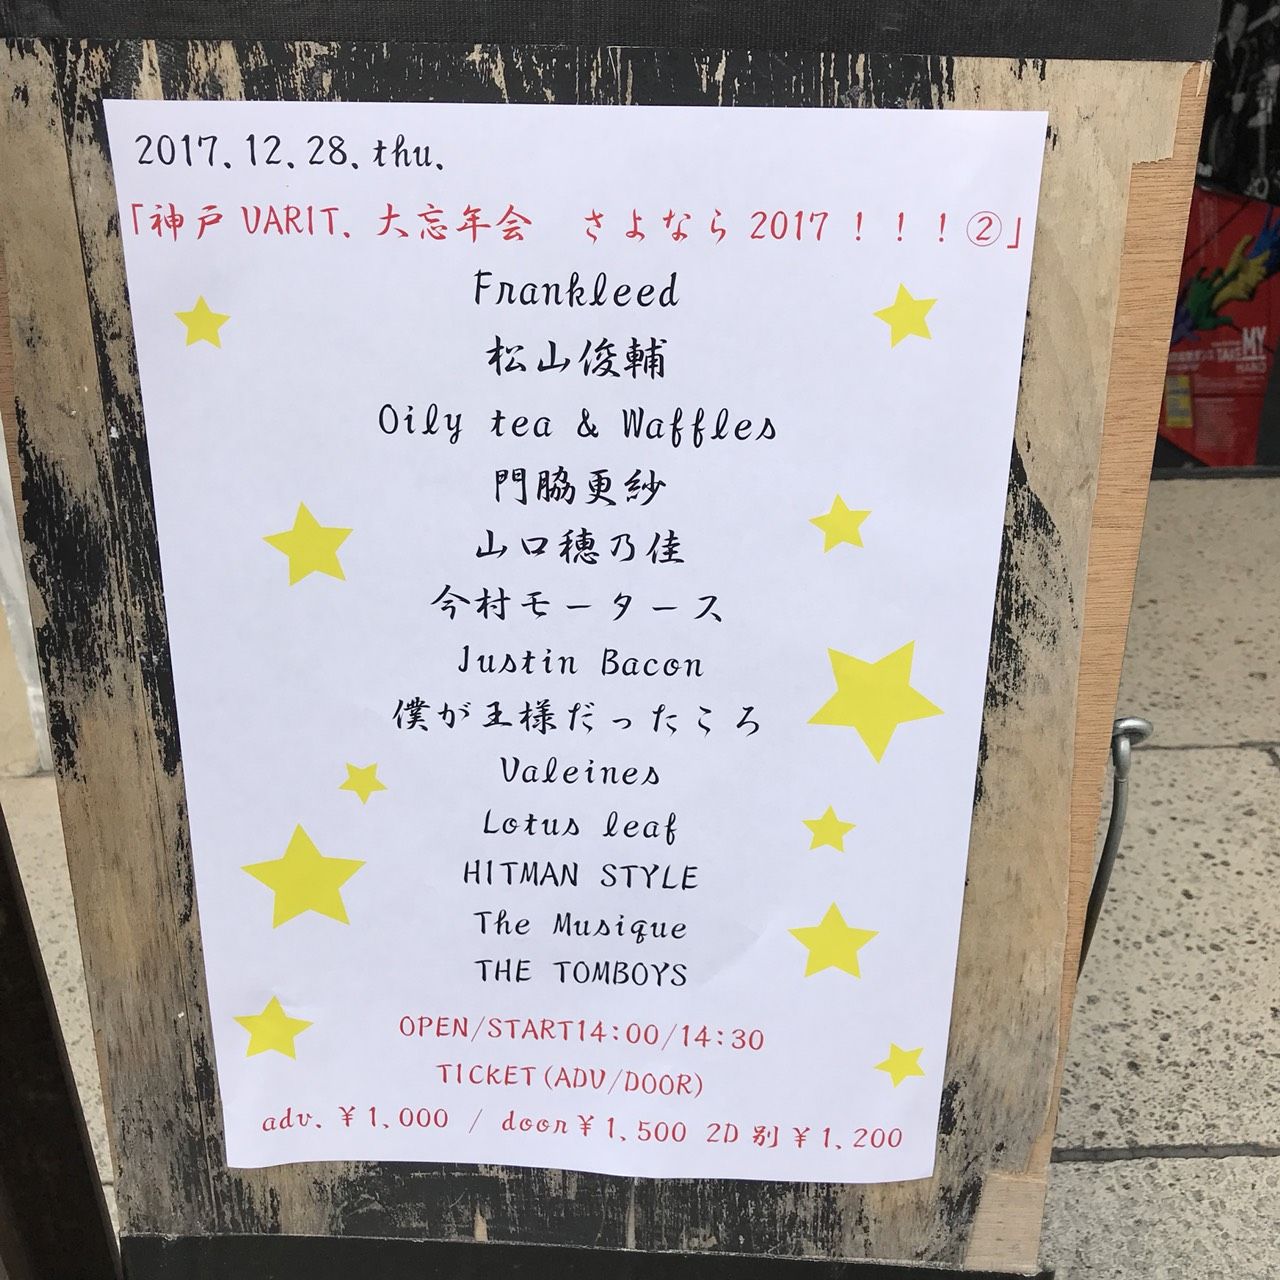 2017.12.28.thu.
「神戸 VARIT. 大忘年会　さよなら 2017！！！②」
Frankleed
松山俊輔
Oily tea & Waffles
門脇更紗
山口穂乃佳
今村モータース
Justin Bacon
僕が王様だったころ
Valeines
Lotus leaf
HITMAN STYLE
The Musique
THE TOMBOYS
OPEN/START14:00/14:30
TICKET(ADV/DOOR)
adv.￥1,000 / door￥1,500 2D 別￥1,200
TAKE MY